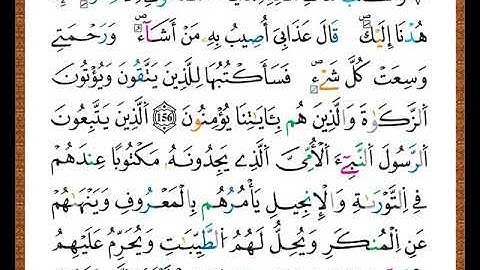 هُدْنَا إِلَيْكَ قَالَ عَذَابِيَ أُصِيبُ بِهِۦ مَنْ أَشَآءُ وَرَحْمَتِي
وَسِعَتْ كُلَّ شَےْءٖ فَسَأَكْتُبُهَا لِلَّذِينَ يَتَّقُونَ وَيُؤْتُونَ
اَ۬لزَّكَوٰةَ وَالَّذِينَ هُم بِـَٔايَٰتِنَا يُؤْمِنُونَ 156 اَ۬لَّذِينَ يَتَّبِعُونَ
اَ۬لرَّسُولَ اَ۬لنَّبِےٓءَ اَ۬لْأُمِّيَّ اَ۬لَّذِے يَجِدُونَهُۥ مَكْتُوبًا عِندَهُمْ
فِے اِ۬لتَّوْرَىٰةِ وَالْإِنجِيلِ يَأْمُرُهُم بِالْمَعْرُوفِ وَيَنْهَىٰهُمْ
عَنِ اِ۬لْمُنكَرِ وَيُحِلُّ لَهُمُ اُ۬لطَّيِّبَٰتِ وَيُحَرِّمُ عَلَيْهِمُ